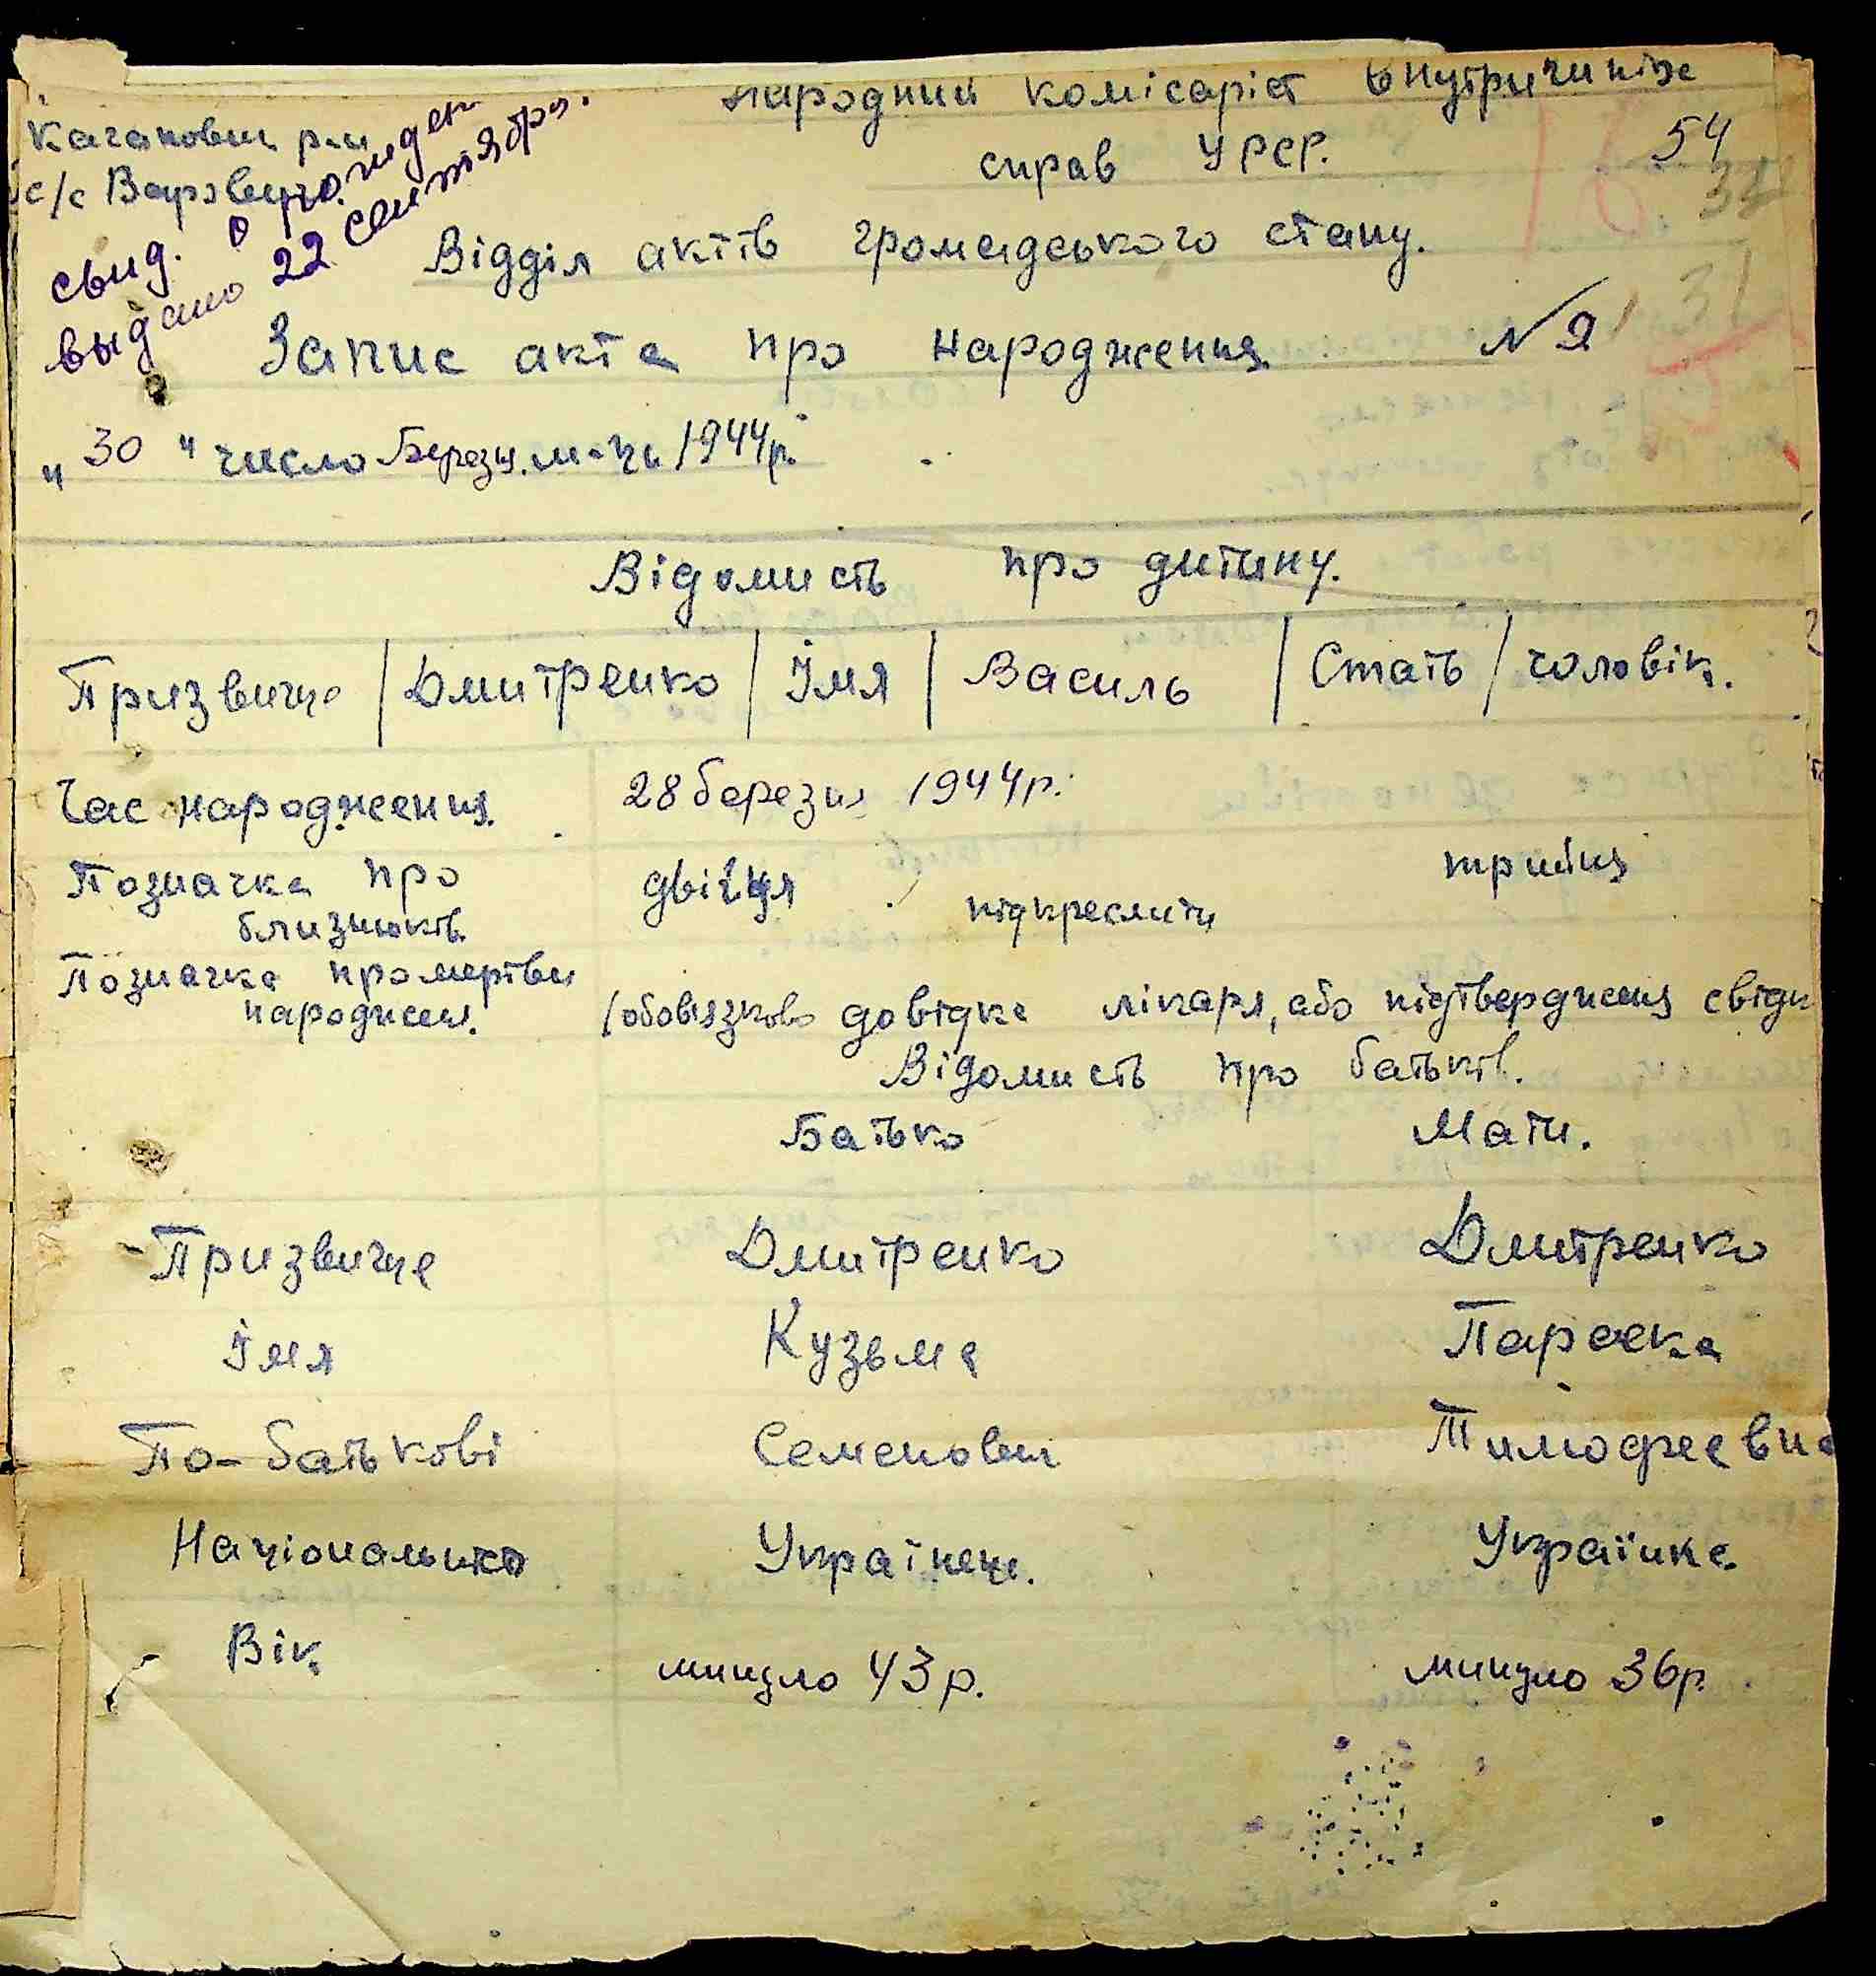 Народний комісаріат внутричніх
справ УРСР.
54
Каганович р-н
с/с Варовичі
свид. о рожден
выдано 22 сентября.
Відділ актів громадського стану.
Запис акта про народження № 9
"30" число Березня м-ця 1944р.
Відомисть про дитину.
Призвище / Дмитренко / Імя / Василь / Стать / чоловік.
Час народження. 28 березня 1944р.
Позначка про близнюків. двійня підкреслити трийня
Позначка про мертви народжен. (обовязково довідка лікаря, або підтвердження свідк
Відомисть про батьків.
Батько Мати.
Призвичще Дмитренко Дмитренко
Імя Кузьма Параска
По-батькові Семенович Тимофеевна
Національність Українец. Українка
Вік минуло 43р. минуло 36р.